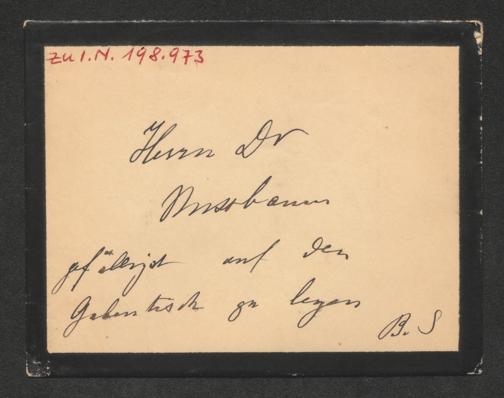 zu I.N. 198.973
Herrn Dr
Nussbaum
gefälligst auf den
Gabentisch zu legen
B. S